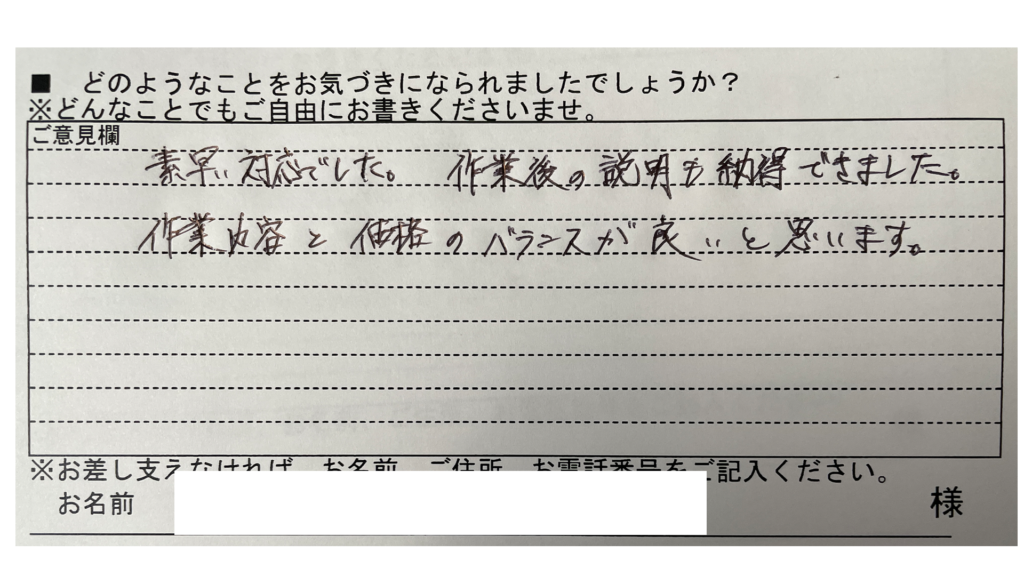 ■　どのようなことをお気づきになられましたでしょうか？
※どんなことでもご自由にお書きくださいませ。
ご意見欄
素早い対応でした。　作業後の説明も納得できました。
作業内容と価格のバランスが良いと思います。
※お差し支えなければ、お名前、ご住所、お電話番号をご記入ください。
お名前　様